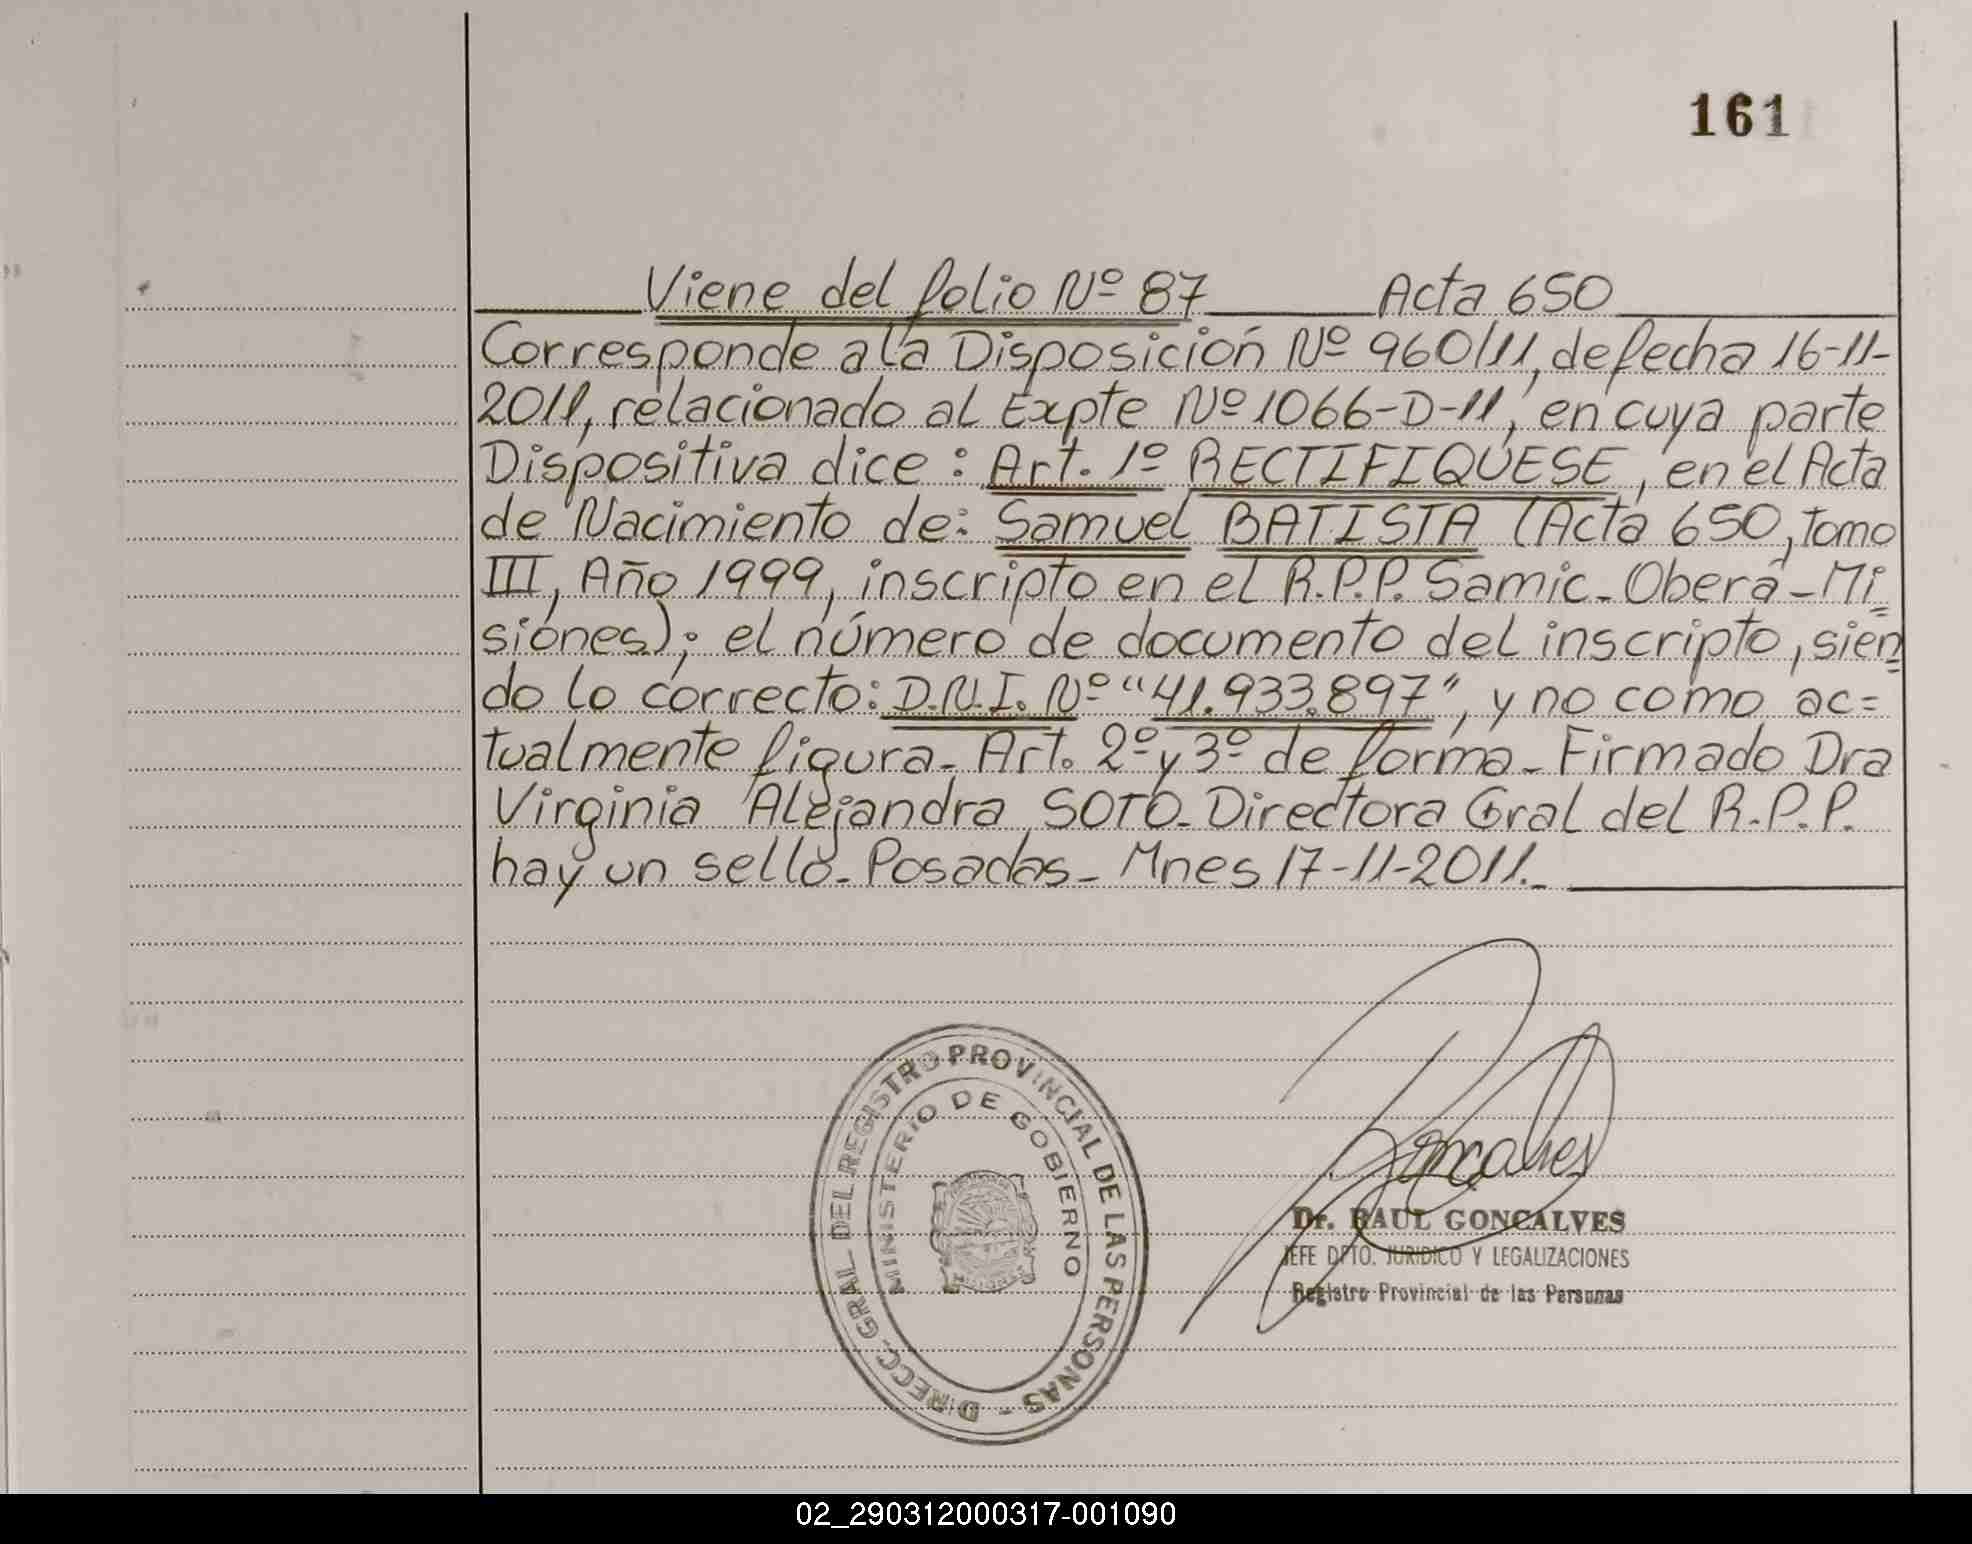 161
Viene del folio Nº 87 Acta 650
Corresponde a la Disposición Nº 960/11, de fecha 16-11-
2011, relacionado al Expte Nº 1066-D-11, en cuya parte
Dispositiva dice: Art. 1º RECTIFIQUESE, en el Acta
de Nacimiento de: Samuel BATISTA (Acta 650, tomo
III, Año 1999, inscripto en el R.P.P. Samic-Oberá-Mi=
siones); el número de documento del inscripto, sien=
do lo correcto: D.N.I. Nº "41.933.897", y no como ac=
tualmente figura- Art. 2º y 3º de forma- Firmado Dra
Virginia Alejandra SOTO- Directora Gral del R.P.P.
hay un sello- Posadas- Mnes 17-11-2011.-
DIRECC. GRAL DEL REGISTRO PROVINCIAL DE LAS PERSONAS -
MINISTERIO DE GOBIERNO
MISIONES
Goncalves
Dr. RAUL GONCALVES
JEFE DPTO. JURIDICO Y LEGALIZACIONES
Registro Provincial de las Personas
02_290312000317-001090